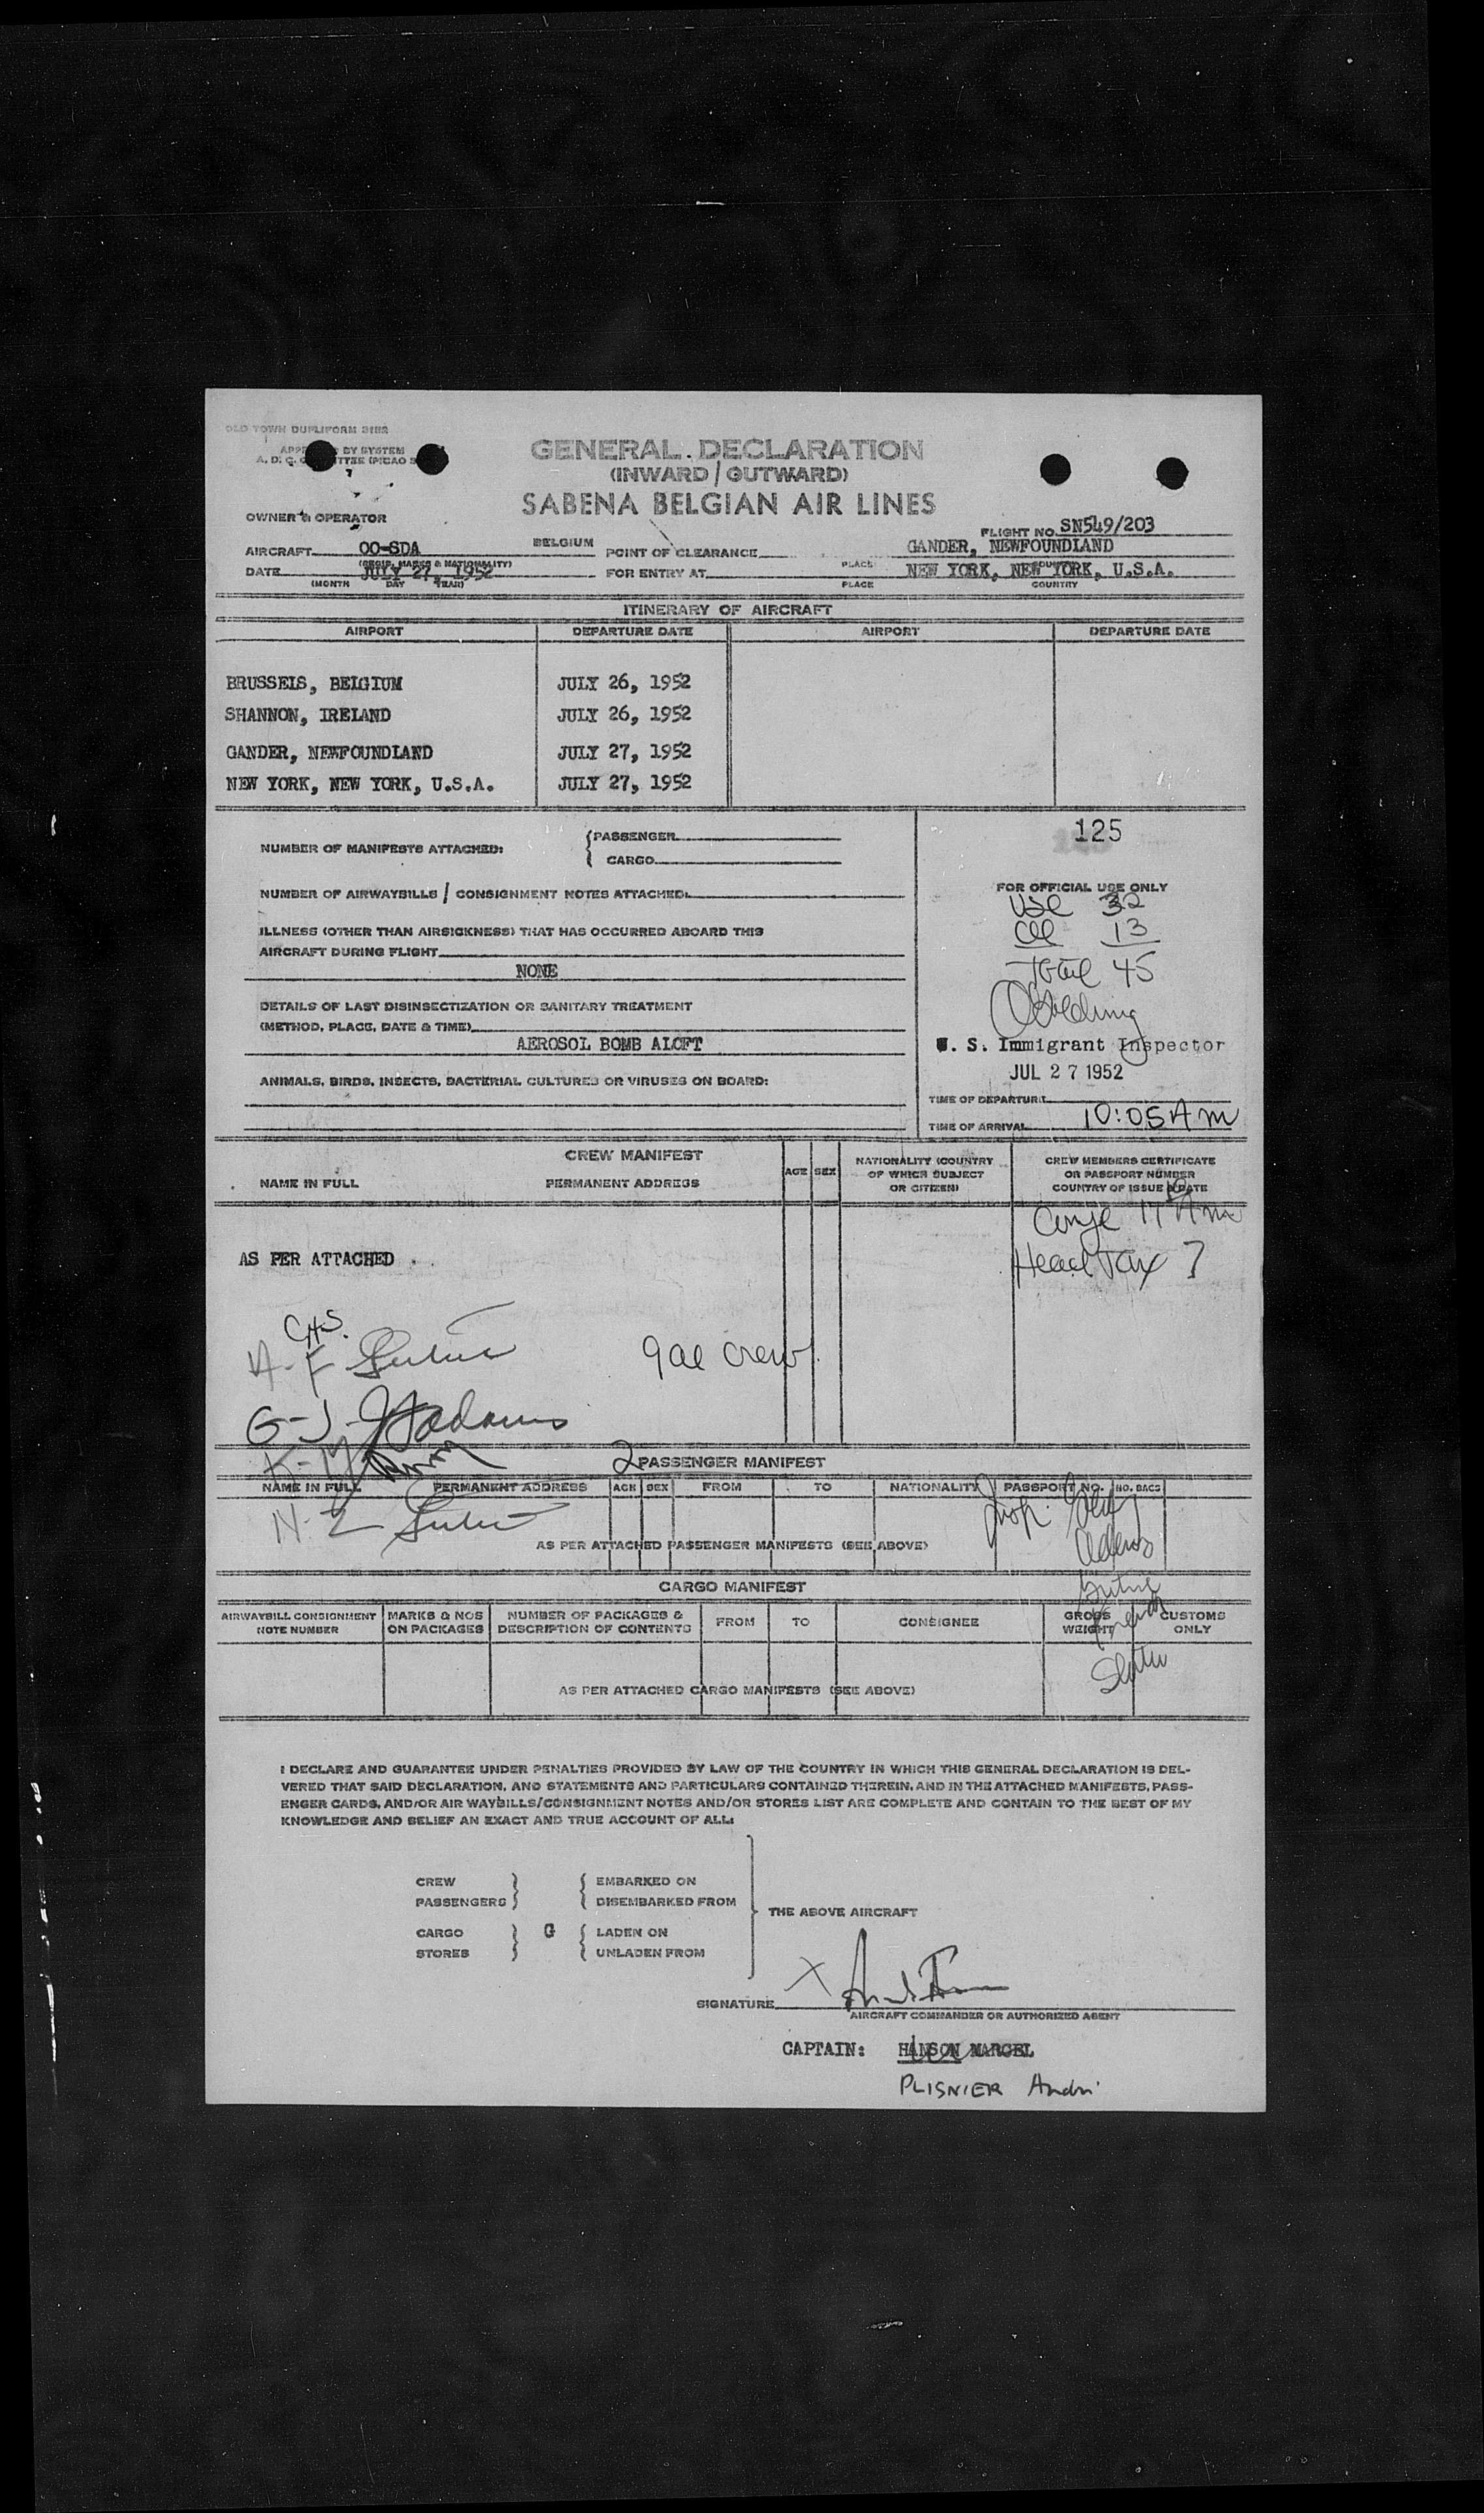 OLD TOWN DUPLIFORM
BY SYSTEM
GENERAL DECLARATION
(INWARD / OUTWARD)
SABENA BELGIAN AIR LINES
OWNER & OPERATOR
FLIGHT NO. SN549/203
AIRCRAFT OO-SDA BELGIUM POINT OF CLEARANCE GANDER, NEWFOUNDLAND
(REGIS. MARKS & NATIONALITY) PLACE
DATE JULY 27, 1952 FOR ENTRY AT NEW YORK, NEW YORK, U.S.A.
(MONTH DAY YEAR) PLACE COUNTRY
ITINERARY OF AIRCRAFT
AIRPORT DEPARTURE DATE AIRPORT DEPARTURE DATE
BRUSSELS, BELGIUM JULY 26, 1952
SHANNON, IRELAND JULY 26, 1952
GANDER, NEWFOUNDLAND JULY 27, 1952
NEW YORK, NEW YORK, U.S.A. JULY 27, 1952
125
NUMBER OF MANIFESTS ATTACHED: PASSENGER
CARGO
FOR OFFICIAL USE ONLY
NUMBER OF AIRWAYBILLS / CONSIGNMENT NOTES ATTACHED:
USC 32
ILLNESS (OTHER THAN AIRSICKNESS) THAT HAS OCCURRED ABOARD THIS
13
AIRCRAFT DURING FLIGHT
Total 45
NONE
DETAILS OF LAST DISINSECTIZATION OR SANITARY TREATMENT
(METHOD, PLACE, DATE & TIME)
AEROSOL BOMB ALOFT
U. S. Immigrant Inspector
JUL 27 1952
ANIMALS, BIRDS, INSECTS, BACTERIAL CULTURES OR VIRUSES ON BOARD:
TIME OF DEPARTURE
TIME OF ARRIVAL 10:05 AM
CREW MANIFEST
NAME IN FULL PERMANENT ADDRESS AGE SEX
NATIONALITY (COUNTRY
OF WHICH SUBJECT
OR CITIZEN)
CREW MEMBERS CERTIFICATE
OR PASSPORT NUMBER
COUNTRY OF ISSUE & DATE
AS PER ATTACHED
Head Tax 7
9 crew
G-J- Adams
2 PASSENGER MANIFEST
NAME IN FULL PERMANENT ADDRESS AGE SEX FROM TO NATIONALITY PASSPORT NO. NO. BAGS
AS PER ATTACHED PASSENGER MANIFESTS (SEE ABOVE)
Adams
CARGO MANIFEST
AIRWAYBILL CONSIGNMENT
NOTE NUMBER
MARKS & NOS
ON PACKAGES
NUMBER OF PACKAGES &
DESCRIPTION OF CONTENTS
FROM TO CONSIGNEE
GROSS
WEIGHT
CUSTOMS
ONLY
AS PER ATTACHED CARGO MANIFESTS (SEE ABOVE)
I DECLARE AND GUARANTEE UNDER PENALTIES PROVIDED BY LAW OF THE COUNTRY IN WHICH THIS GENERAL DECLARATION IS DEL-
VERED THAT SAID DECLARATION, AND STATEMENTS AND PARTICULARS CONTAINED THEREIN, AND IN THE ATTACHED MANIFESTS, PASS-
ENGER CARDS, AND/OR AIR WAYBILLS/CONSIGNMENT NOTES AND/OR STORES LIST ARE COMPLETE AND CONTAIN TO THE BEST OF MY
KNOWLEDGE AND BELIEF AN EXACT AND TRUE ACCOUNT OF ALL:
CREW EMBARKED ON
PASSENGERS DISEMBARKED FROM
THE ABOVE AIRCRAFT
CARGO G LADEN ON
STORES UNLADEN FROM
X
SIGNATURE
AIRCRAFT COMMANDER OR AUTHORIZED AGENT
CAPTAIN: HANSON MARCEL
PLISNIER André